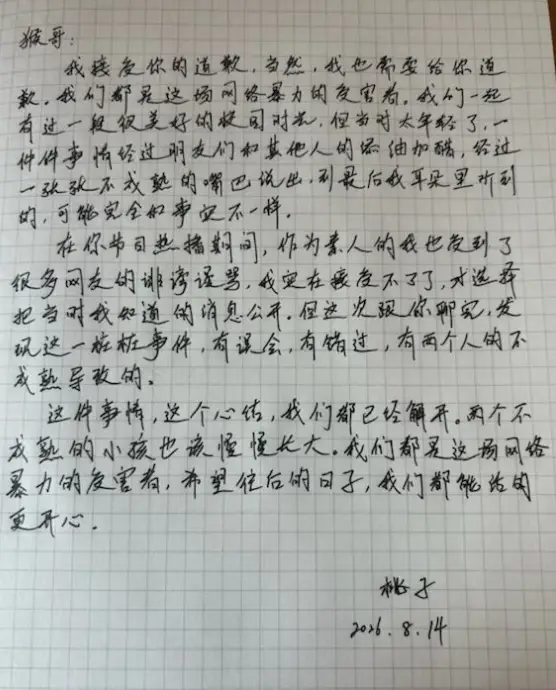 猴哥:
我接受你的道歉,当然,我也需要给你道
歉。我们都是这场网络暴力的受害者。我们一起
有过一段很美好的校园时光,但当时太年轻了,一
件件事情经过朋友们和其他人的添油加醋,经过
一张张不成熟的嘴巴说出,到最后我耳朵里听到
的,可能完全和事实不一样。
在你节目热播期间,作为素人的我也受到了
很多网友的诽谤谩骂,我实在接受不了了,才选择
把当时我知道的消息公开。但这次跟你聊完,发
现这一桩桩事件,有误会,有错过,有两个人的不
成熟导致的。
这件事情,这个心结,我们都已经解开。两个不
成熟的小孩也该慢慢长大。我们都是这场网络
暴力的受害者,希望往后的日子,我们都能活的
更开心.
桃子
2026.8.14